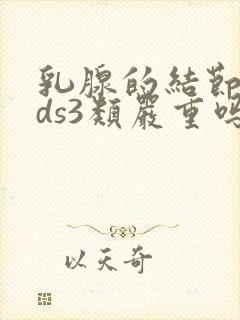 乳腺的結節
ds3類嚴重嗎
以天奇